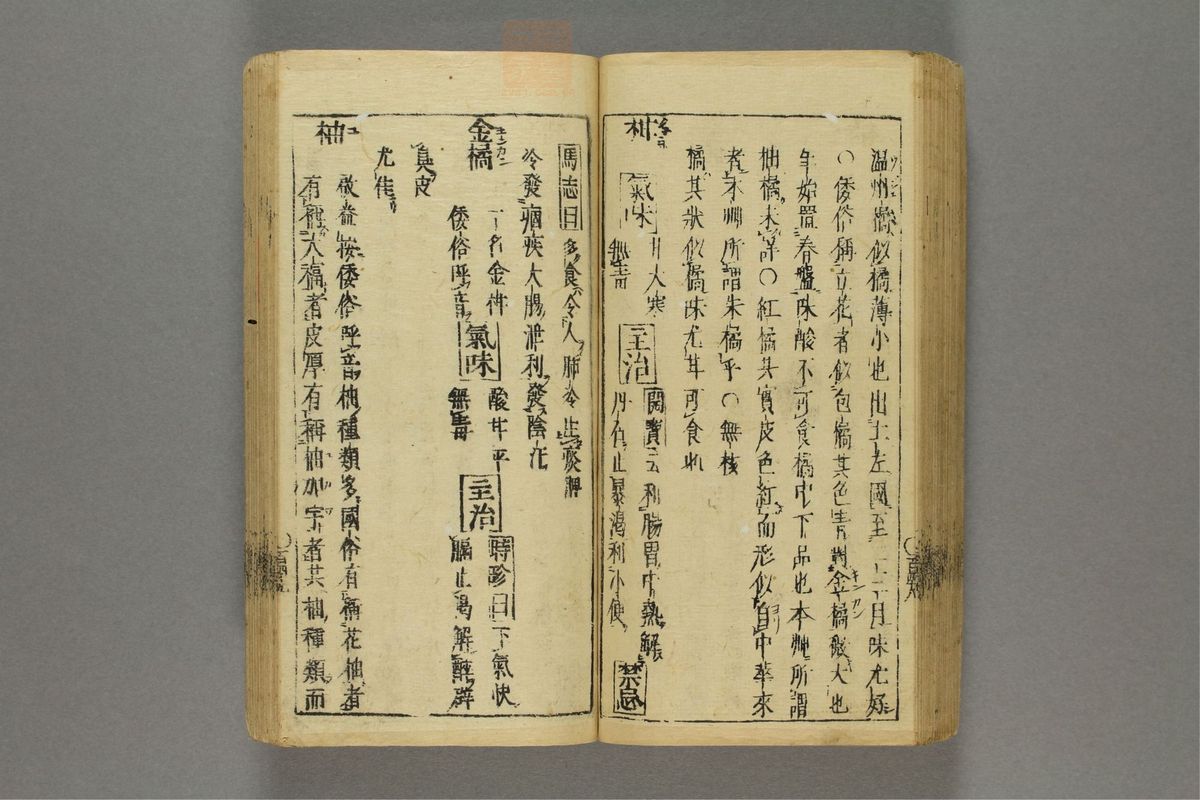 温州橘似橘薄小也出土左國至十二月味尤好
○倭俗稱立花者似包橘其色青割金橘最大也
年始置春盤味酸不可食橘中下品也本艸所謂
柚橘未詳○紅橘其實皮色紅而形似自中華來
者本艸所謂朱橘乎○無核
橘其狀似橘味尤甘可食也
柑
氣味 甘大寒
無毒
主治 開寶云利腸胃中熱解
丹石止暴渴利小便
禁忌
馬志曰 多食令人肺冷生痰脾
冷發痼疾大腸泄利發陰汗
金橘 キンカン
一名金柑
倭俗呼音
氣味 酸甘平
無毒
主治 時珍曰下氣快
膈止渴解酲辟
臭皮
尤佳
柚 ユ
啟益按倭俗呼音柚種類多國俗有稱花柚者
有稱大福者皮厚有稱柚加宇者其柚種類而